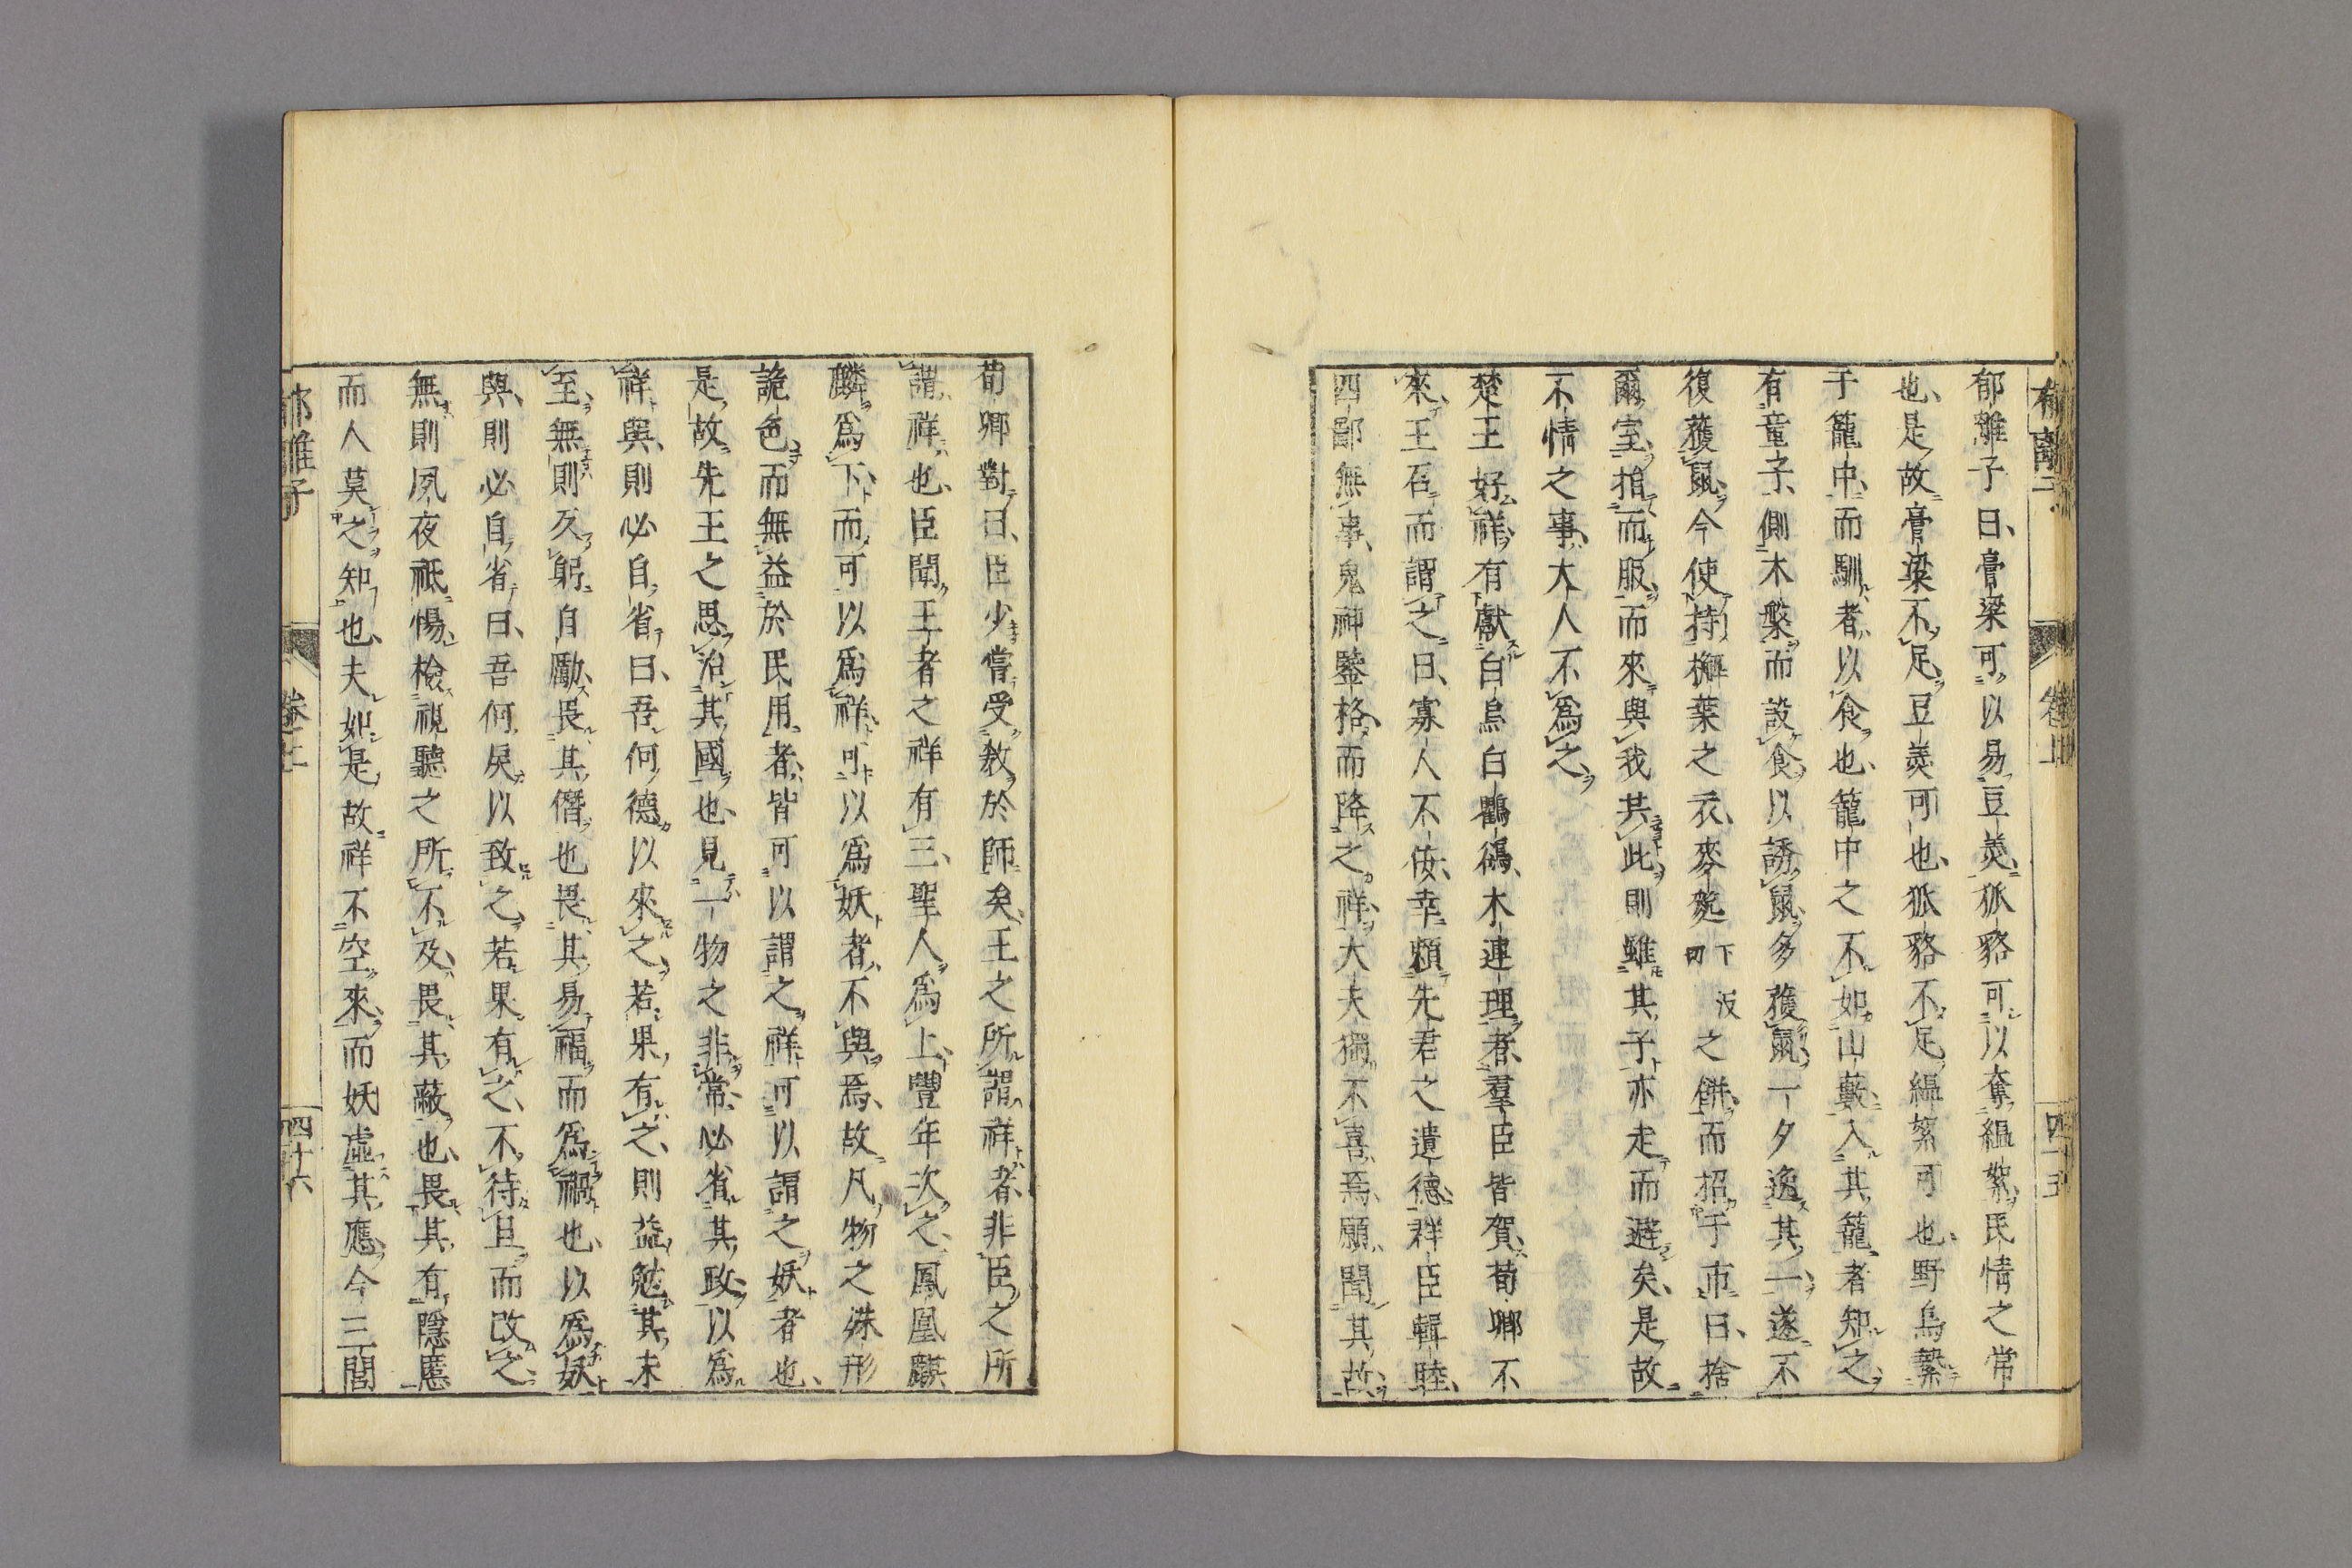 郁離子
卷上
四十五
郁離子曰膏粱可以易豆羹狐貉可以奪縕絮民情之常
也是故膏粱不足豆羹可也狐貉不足縕絮可也野鳥縶
于籠中而馴者以食也籠中之不如山藪入其籠者知之
有童子側木槃而設食以誘鼠多獲鼠一夕逸其一遂不
復獲鼠今使持槲葉之衣麥麧下沒切之餅而招于市曰捨
爾室捨而服而來與我共此則雖其子亦走而避矣是故
不情之事大人不為之
楚王好祥有獻白烏白鸜鵒木連理者羣臣皆賀荀卿不
來王召而謂之曰寡人不佞幸賴先君之遺德群臣輯睦
四鄙無事鬼神鑒格而降之祥大夫獨不喜焉願聞其故
荀卿對曰臣少嘗受教於師矣王之所謂祥者非臣之所
謂祥也臣聞王者之祥有三聖人為上豐年次之鳳凰麒
麟為下而可以為祥可以為妖者不與焉故凡物之殊形
詭色而無益於民用者皆可以謂之祥可以謂之妖者也
是故先王之思治其國也見一物之非常必省其政以為
祥與則必自省曰吾何德以來之若果有之則益勉其未
至無則反躬自勵畏其僭也畏其易福而為禍也以為妖
與則必自省曰吾何戾以致之若果有之不待旦而改之
無則夙夜祗惕檢視聽之所不及畏其蔽也畏其有隱慝
而人莫之知也夫如是故祥不空來而妖虛其應今三閭
郁離子
卷上
四十六